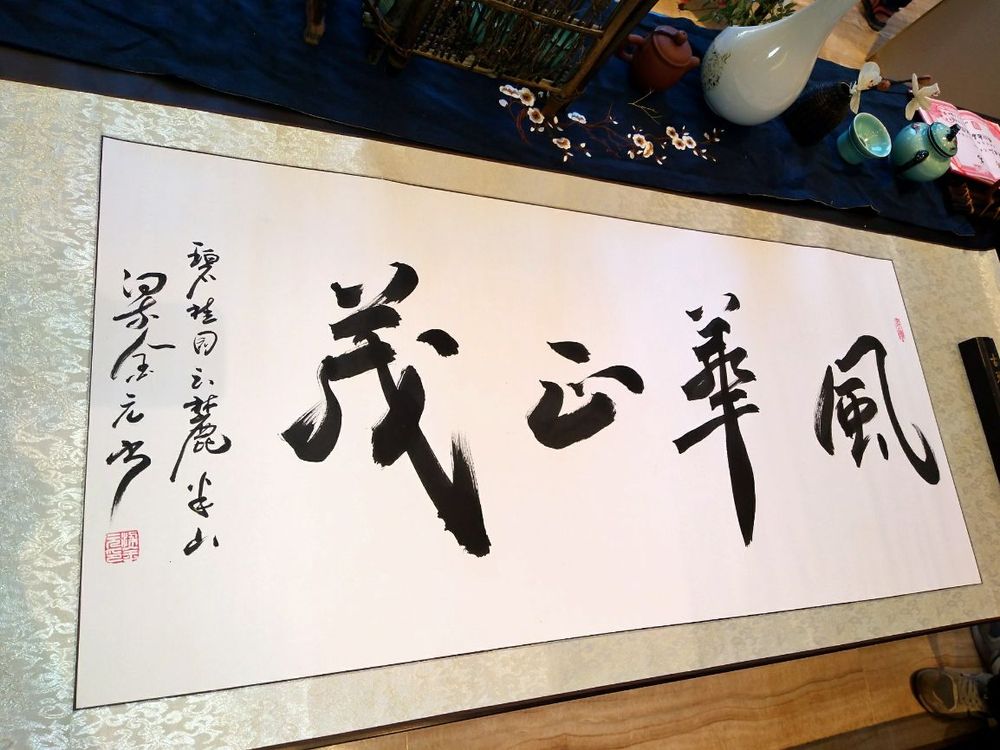 風華正茂
碧桂园云麓半山
梁金元书